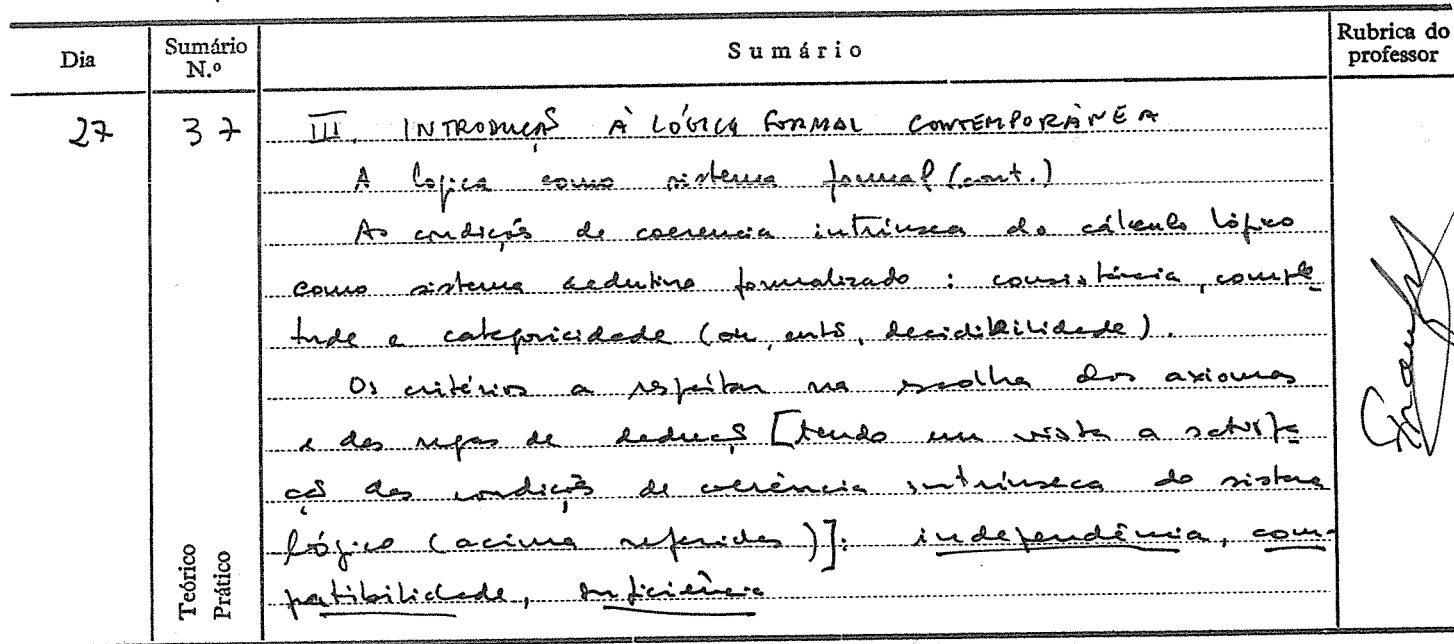 Dia Sumário N.º Sumário Rubrica do professor
27 37 III. INTRODUÇÃO À LÓGICA FORMAL CONTEMPORÂNEA
A logica como sistema formal (cont.)
As condições de coerencia intrínseca do cálculo lógico
como sistema dedutivo formalizado : consistência, comple
tude e categoricidade (ou, então, decidibilidade).
Os critérios a respeitar na escolha dos axiomas
e das regras de dedução [tendo em vista a satisfa
ção das condições de coerência intrínseca do sistema
lógico (acima referidas)]: independência, com-
patibilidade, suficiência
Teórico
Prático